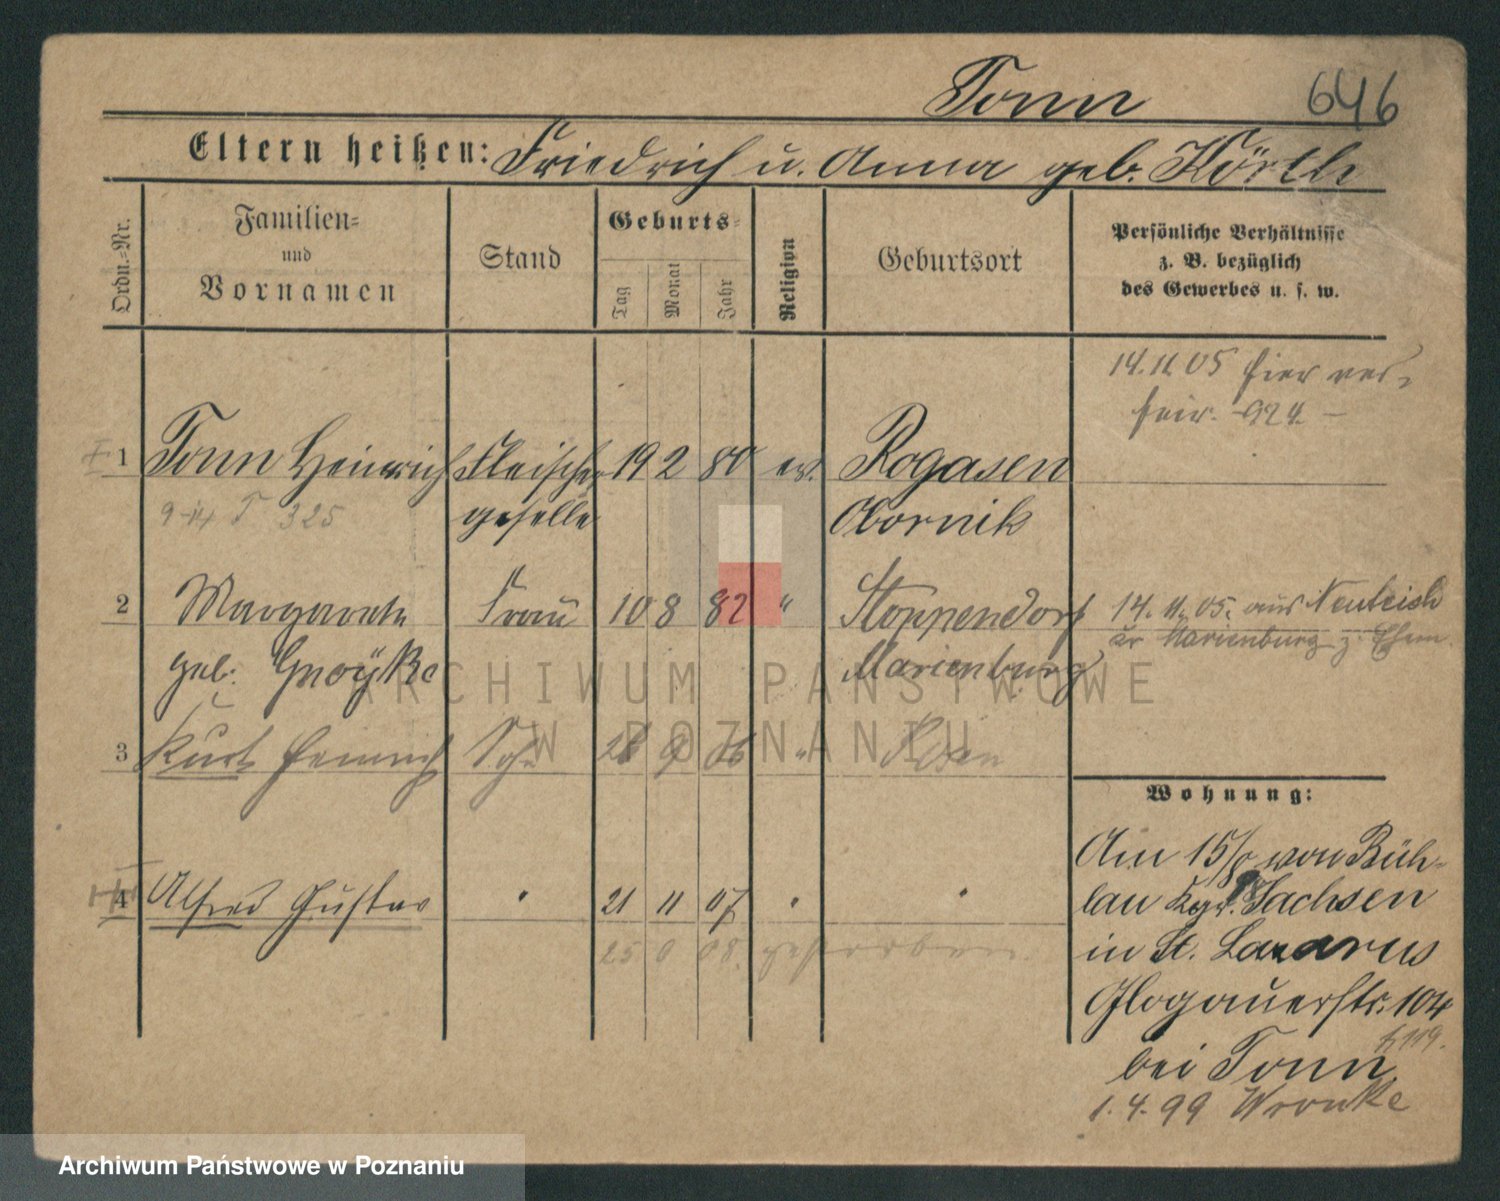 Tonn 646
Eltern heißen: Friedrich u. Anna geb. Körth
Ordn.-Nr.
Familien-
und
Vornamen
Stand
Geburts-
Tag
Monat
Jahr
Religion
Geburtsort
Persönliche Verhältnisse
z. B. bezüglich
des Gewerbes u. s. w.
14.11.05 hier ver-
heir. 924.
1 Tonn Heinrich Fleischer 19 2 80 ev. Rogasen
geselle Obornik
325
2 Margarete Frau 10 8 82 " Stoppendorf
geb. Marienburg
14.11.05. aus Neuteich
Kr Marienburg z. Ehem.
3 Kurt Heinrich Sohn 28 9 06 " Posen
4 Alfred Gustav " 21 11 07 " "
25 9 08. gestorben
Wohnung:
Am 15/8 98 von Büh-
lau Kgr. Sachsen
in St. Lazarus
Glogauerstr. 104
bei Tonn.
1.4.99 Wronke
ARCHIWUM PAŃSTWOWE
W POZNANIU
Archiwum Państwowe w Poznaniu